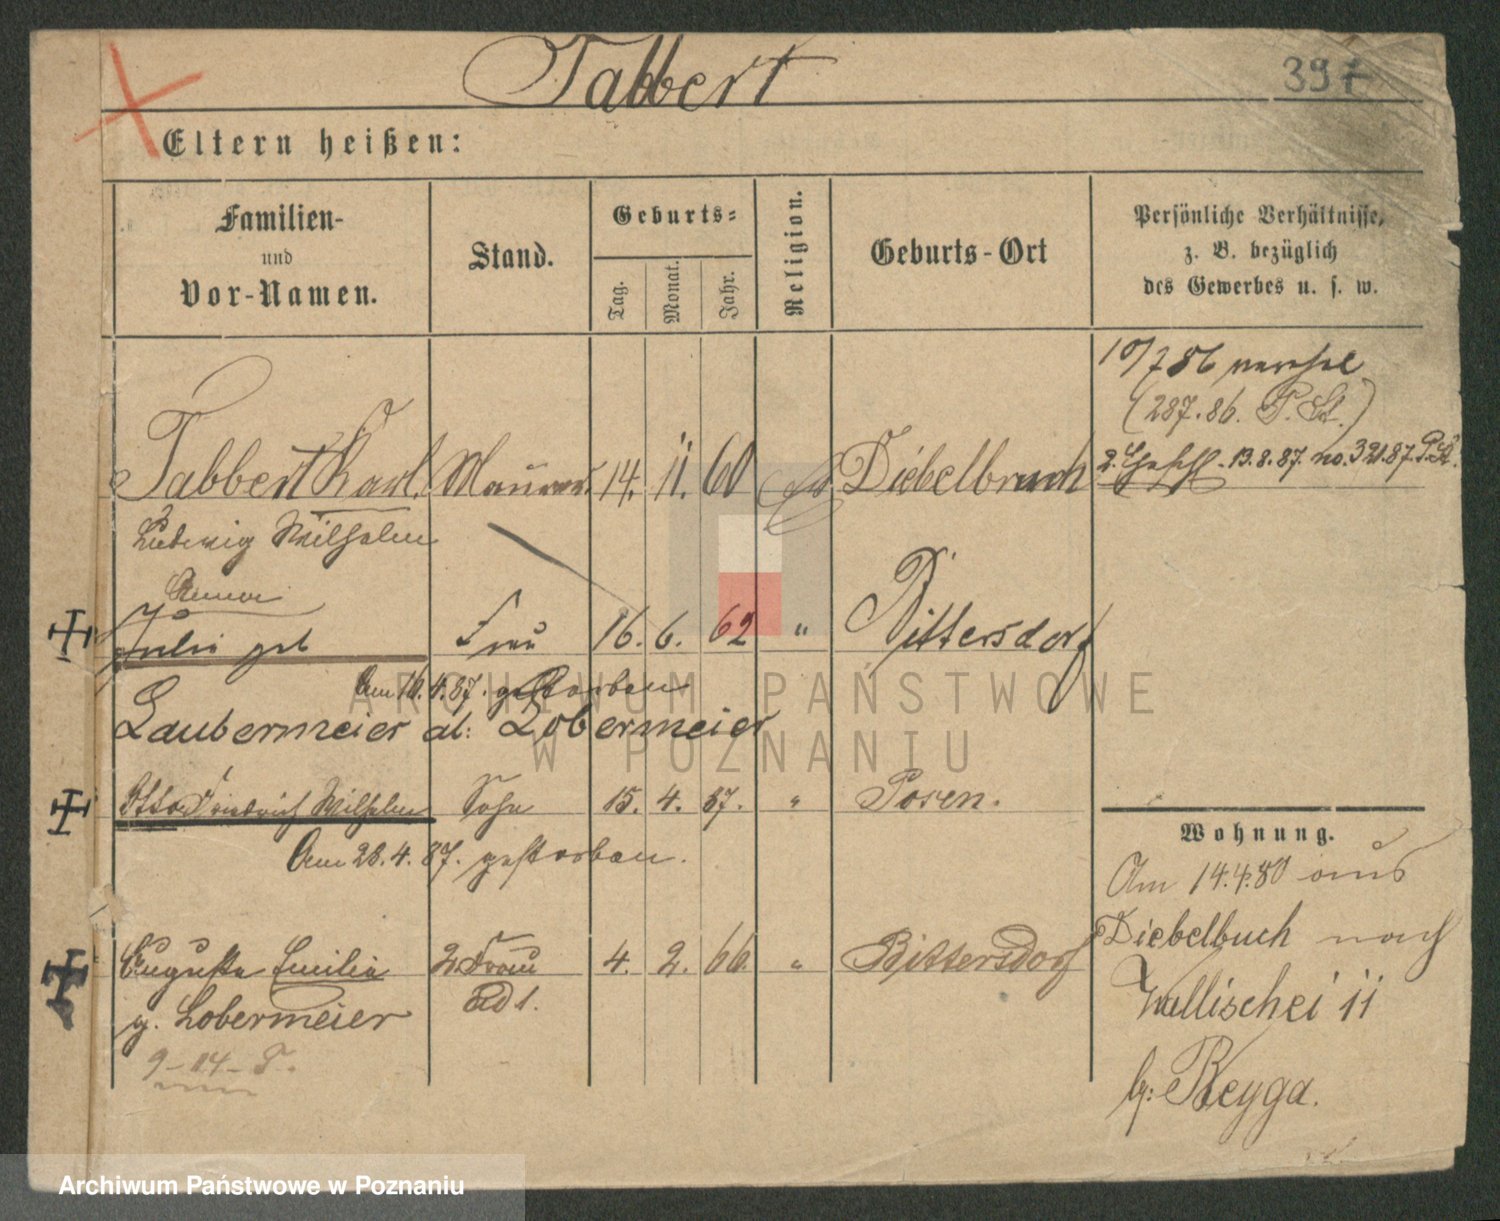 Tabbert
397
Eltern heißen:
Familien-
und
Vor-Namen.
Stand.
Geburts-
Tag.
Monat.
Jahr.
Religion.
Geburts-Ort
Persönliche Verhältnisse,
z. B. bezüglich
des Gewerbes u. s. w.
10/7 86
(287.86. P. St.)
Tabbert Karl Maurer 14. 11. 60 Diebelbruch
2. 13.8.87. no. 321.87. P. St.
Ludwig Wilhelm
Julie geb Frau 16. 6. 62 " Bittersdorf
Am 16.4.87. gestorben
Laubermeier al: Lobermeier
Otto Friedrich Wilhelm Sohn 15. 4. 87. " Posen.
Am 28.4.87. gestorben.
Auguste Emilie 2. Frau 4. 2. 66 " Bittersdorf
g. Lobermeier
9-14-
Wohnung.
Am 14.4.80 aus
Diebelbuch nach
Wallischei 11
b: Reyga.
ARCHIWUM PAŃSTWOWE
W POZNANIU
Archiwum Państwowe w Poznaniu